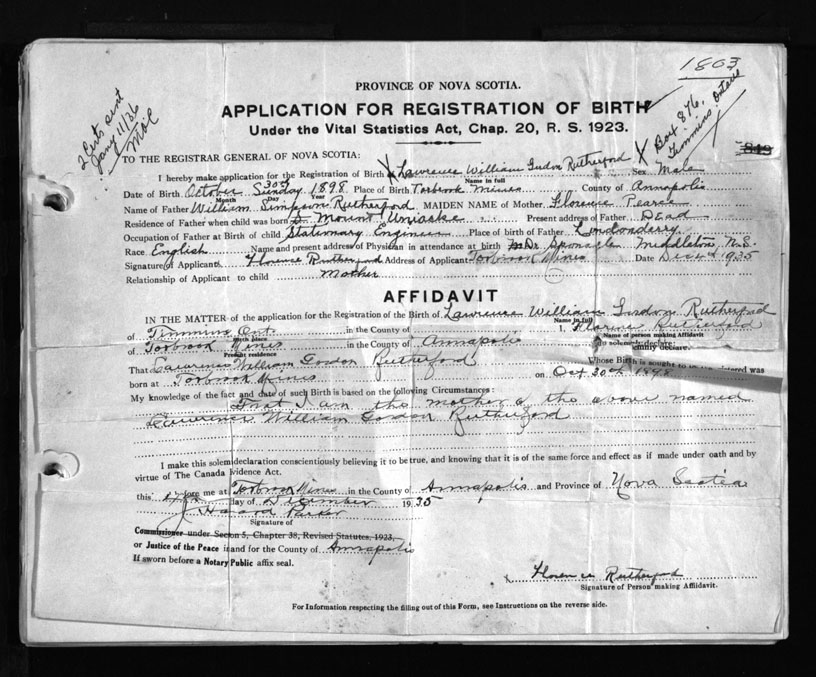 1803
2 Certs sent
Jany 11/36
Box 876,
Timmins Ontario
PROVINCE OF NOVA SCOTIA.
APPLICATION FOR REGISTRATION OF BIRTH
Under the Vital Statistics Act, Chap. 20, R. S. 1923.
TO THE REGISTRAR GENERAL OF NOVA SCOTIA:
I hereby make application for the Registration of Birth Lawrence William Gordon Rutherford Sex Male
Name in full
Date of Birth October Sunday 30th 1898 Place of Birth Torbrook Mines County of Annapolis
Month Day Year
Name of Father William Simpson Rutherford MAIDEN NAME of Mother Florence Pearce
Residence of Father when child was born Mount Uniacke Present address of Father Dead
Occupation of Father at Birth of child Stationary Engineer Place of birth of Father Londonderry
Race English Name and present address of Physician in attendance at birth Dr Sponagle Middleton N.S.
Signature of Applicant Florence Rutherford Address of Applicant Torbrook Mines Date Dec 4th 1935
Relationship of Applicant to child Mother
AFFIDAVIT
IN THE MATTER of the application for the Registration of the Birth of Lawrence William Gordon Rutherford
Name in full
of Timmins Ont. in the County of I, Florence Rutherford
Birth place Name of person making Affidavit
of Torbrook Mines in the County of Annapolis do solemnly declare:
Present residence emnly declare.
That Lawrence William Gordon Rutherford Whose Birth is sought to be registered was
born at Torbrook Mines on Oct 30th 1898
My knowledge of the fact and date of such Birth is based on the following Circumstances:
That I am the mother of the above named
Lawrence William Gordon Rutherford
I make this solem declaration conscientiously believing it to be true, and knowing that it is of the same force and effect as if made under oath and by
virtue of The Canada vidence Act.
fore me at Torbrook Mines in the County of Annapolis and Province of Nova Scotia
this 17th day of December 1935
J. Harold Parker
Signature of
Commissioner under Secion 5, Chapter 38, Revised Statutes, 1923,
or Justice of the Peace in and for the County of Annapolis
If sworn before a Notary Public affix seal.
x Florence Rutherford
Signature of Person making Affidavit.
For Information respecting the filling out of this Form, see Instructions on the reverse side.